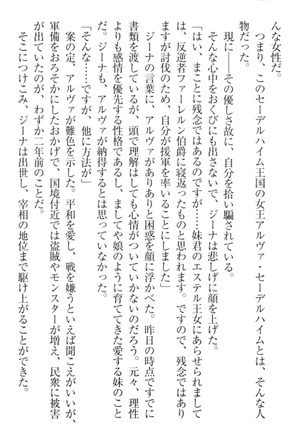 んな女性だ。
　つまり、このセーデルハイム王国の女王アルヴァ・セーデルハイムとは、そんな人
物だった。
　現に――その優しさ故に、自分を拾い騙されている。
　そんな心中をおくびにも出さないで、ジーナは悲しげに顔を上げた。
「はい、まことに残念ではあるのですが……妹君のエステル王女にあらせられまして
は、反逆者ファーレルン伯爵に寝返ったものと思われます。ですので、残念ではあり
ますが、自分が援軍を率いることにしました」
　ジーナの言葉に、アルヴァがありありと困惑を顔に浮かべた。昨日の時点ですでに
書類を渡しているが、頭で理解はしても心情がついていかないのだろう。元々、理性
よりも感情を優先する性格であるし、ましてや娘のように育ててきた愛する妹のこと
だ。ジーナも、アルヴァが納得するとは思っていなかった。
「そんな……ですが、他に方法が」
　案の定、アルヴァが難色を示した。平和を愛し、戦を嫌うといえば聞こえがいいが、
軍備をおろそかにしたおかげで、国境付近では盗賊やモンスターが増え、民衆に被害
が出ていたのが、わずか二年前のことだ。
　そこにつけこみ、ジーナは出世し、宰相の地位まで駆け上がることができた。